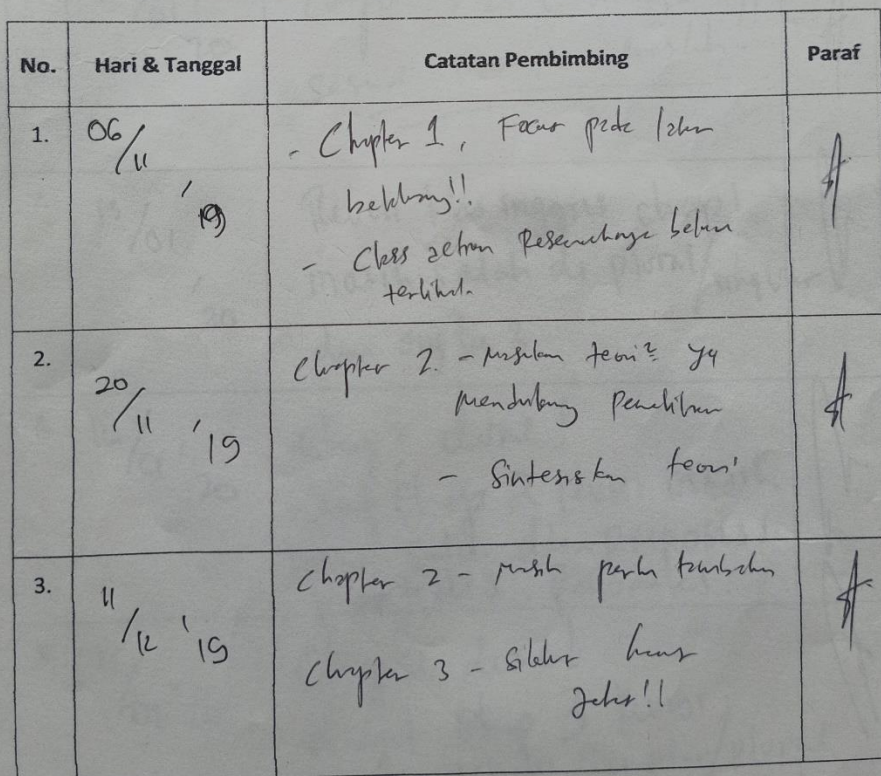 No. Hari & Tanggal Catatan Pembimbing Paraf
1. 06/11 '19
- Chapter 1, Focus pada latar
belakang!!
- Class action Researchnya belum
terlihat.
2. 20/11 '19
Chapter 2. - Masukan teori² yg
mendukung Penelitian
- Sintesiskan teori
3. 11/12 '19
Chapter 2 - Masih perlu tambahan
Chapter 3 - Siklus harus
Jelas!!